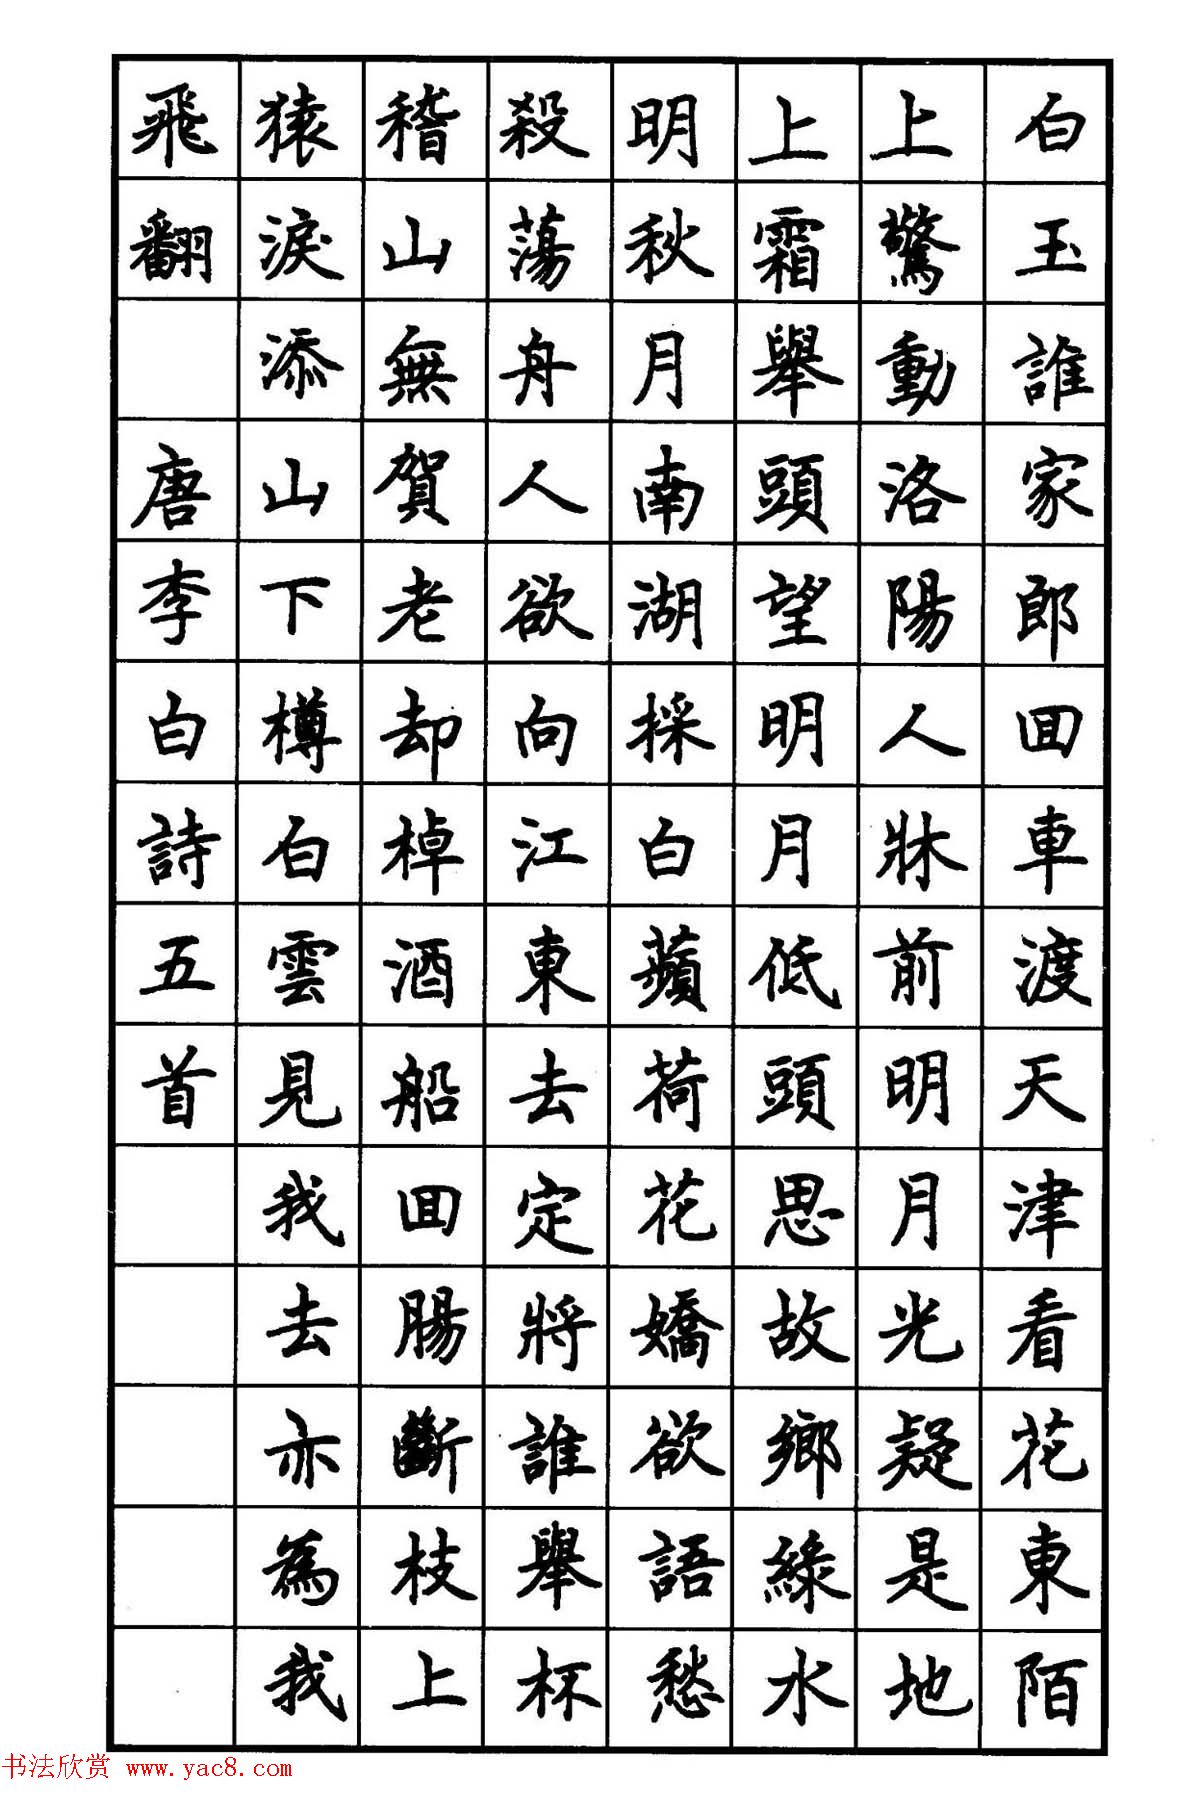 白玉誰家郎回車渡天津看花東陌
上驚動洛陽人牀前明月光疑是地
上霜舉頭望明月低頭思故鄉綠水
明秋月南湖採白蘋荷花嬌欲語愁
殺蕩舟人欲向江東去定將誰舉杯
稽山無賀老却棹酒船回腸斷枝上
猿淚添山下樽白雲見我去亦為我
飛翻 唐李白詩五首
书法欣赏 www.yac8.com